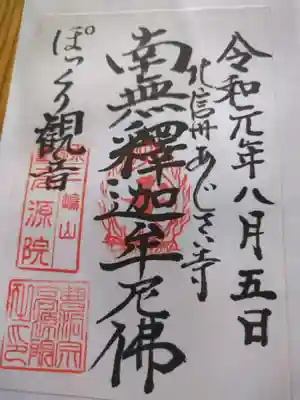 令和元年八月五日
北信州あじさい寺
南無釋迦牟尼佛
ぽっくり観音
嶋山
源院
曹洞宗
高源院
之印